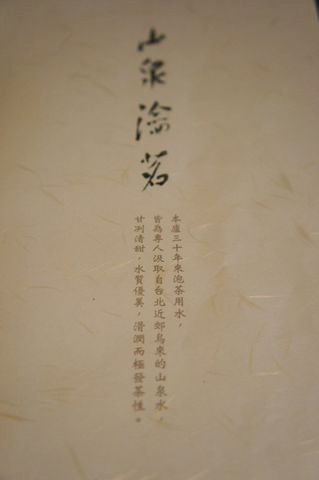 山泉瀹茗
本廬三十年來泡茶用水，
皆為專人汲取自台北近郊烏來的山泉水，
甘冽清甜，水質優美，滑潤而極發茶性。